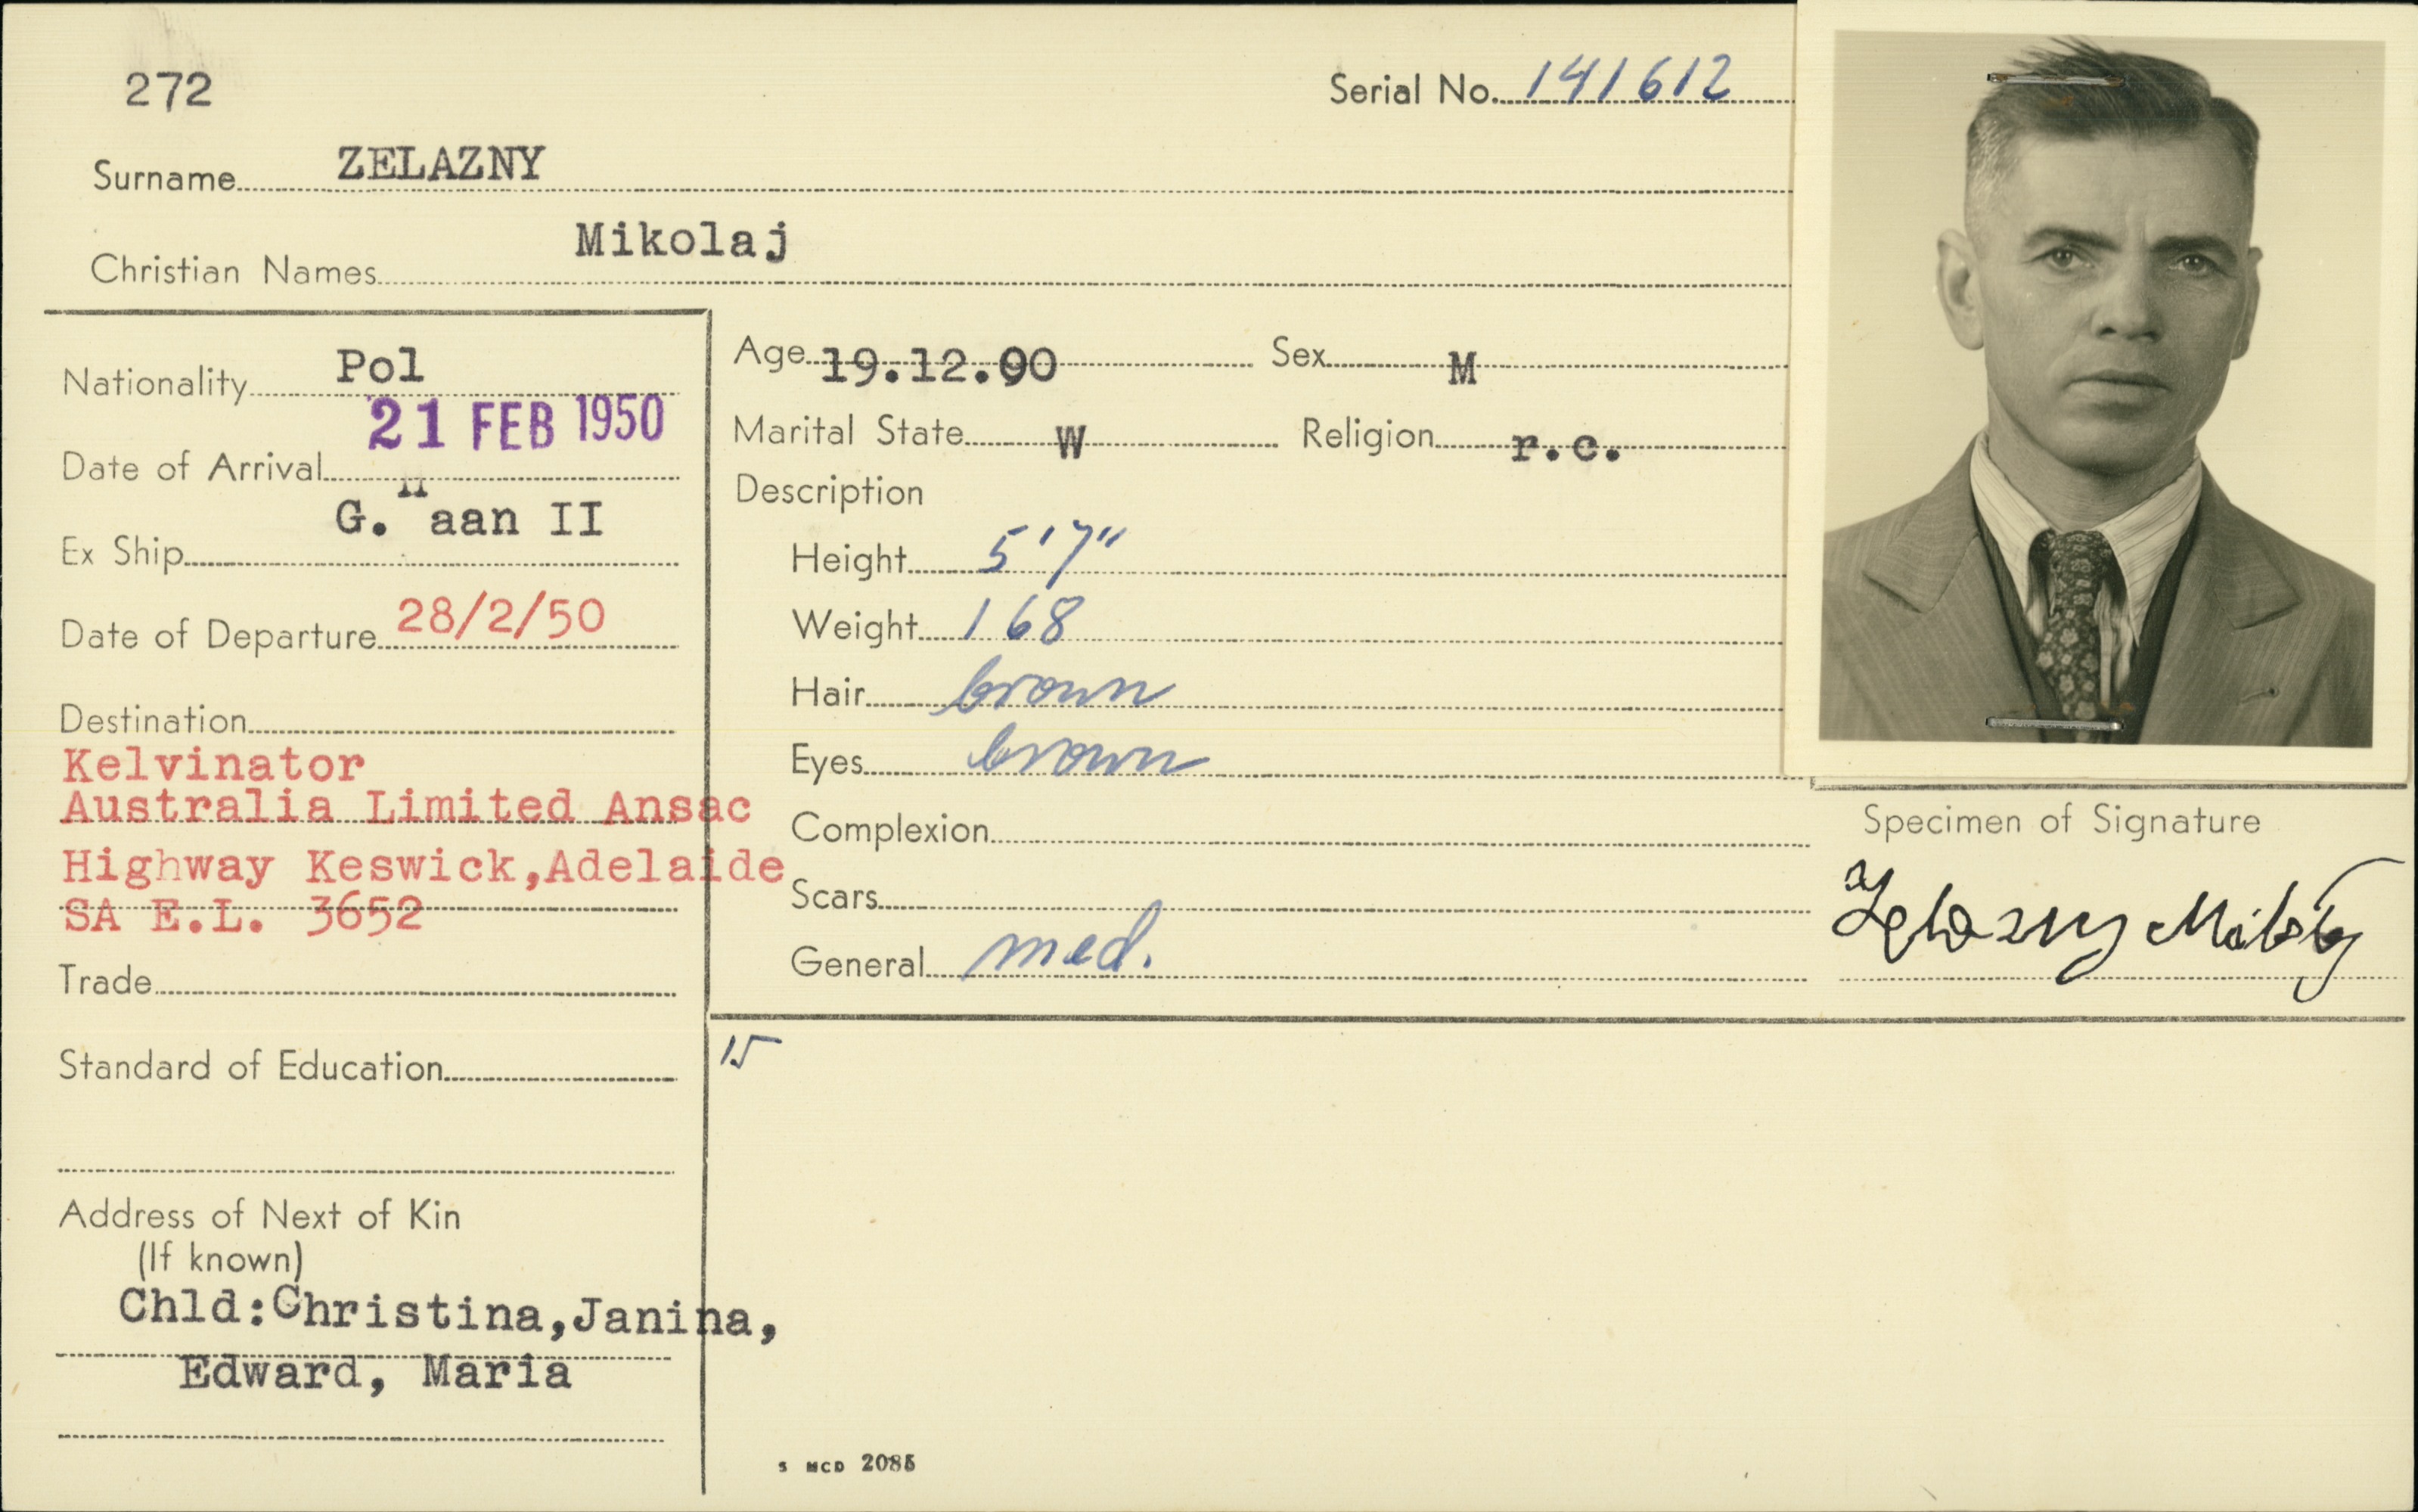 272
Serial No. 141612
Surname ZELAZNY
Christian Names Mikolaj
Nationality Pol
Date of Arrival 21 FEB 1950
Ex Ship G. aan II
Date of Departure 28/2/50
Destination
Kelvinator
Australia Limited Ansac
Highway Keswick,Adelaide
SA E.L. 3652
Trade
Standard of Education
Address of Next of Kin
(If known)
Chld:Christina,Janina,
Edward, Maria
Age 19.12.90 Sex M
Marital State W Religion r.c.
Description
Height 5'7"
Weight 168
Hair brown
Eyes brown
Complexion
Scars
General med.
Specimen of Signature
Zelazny Mikolaj
15
S MCD 2085